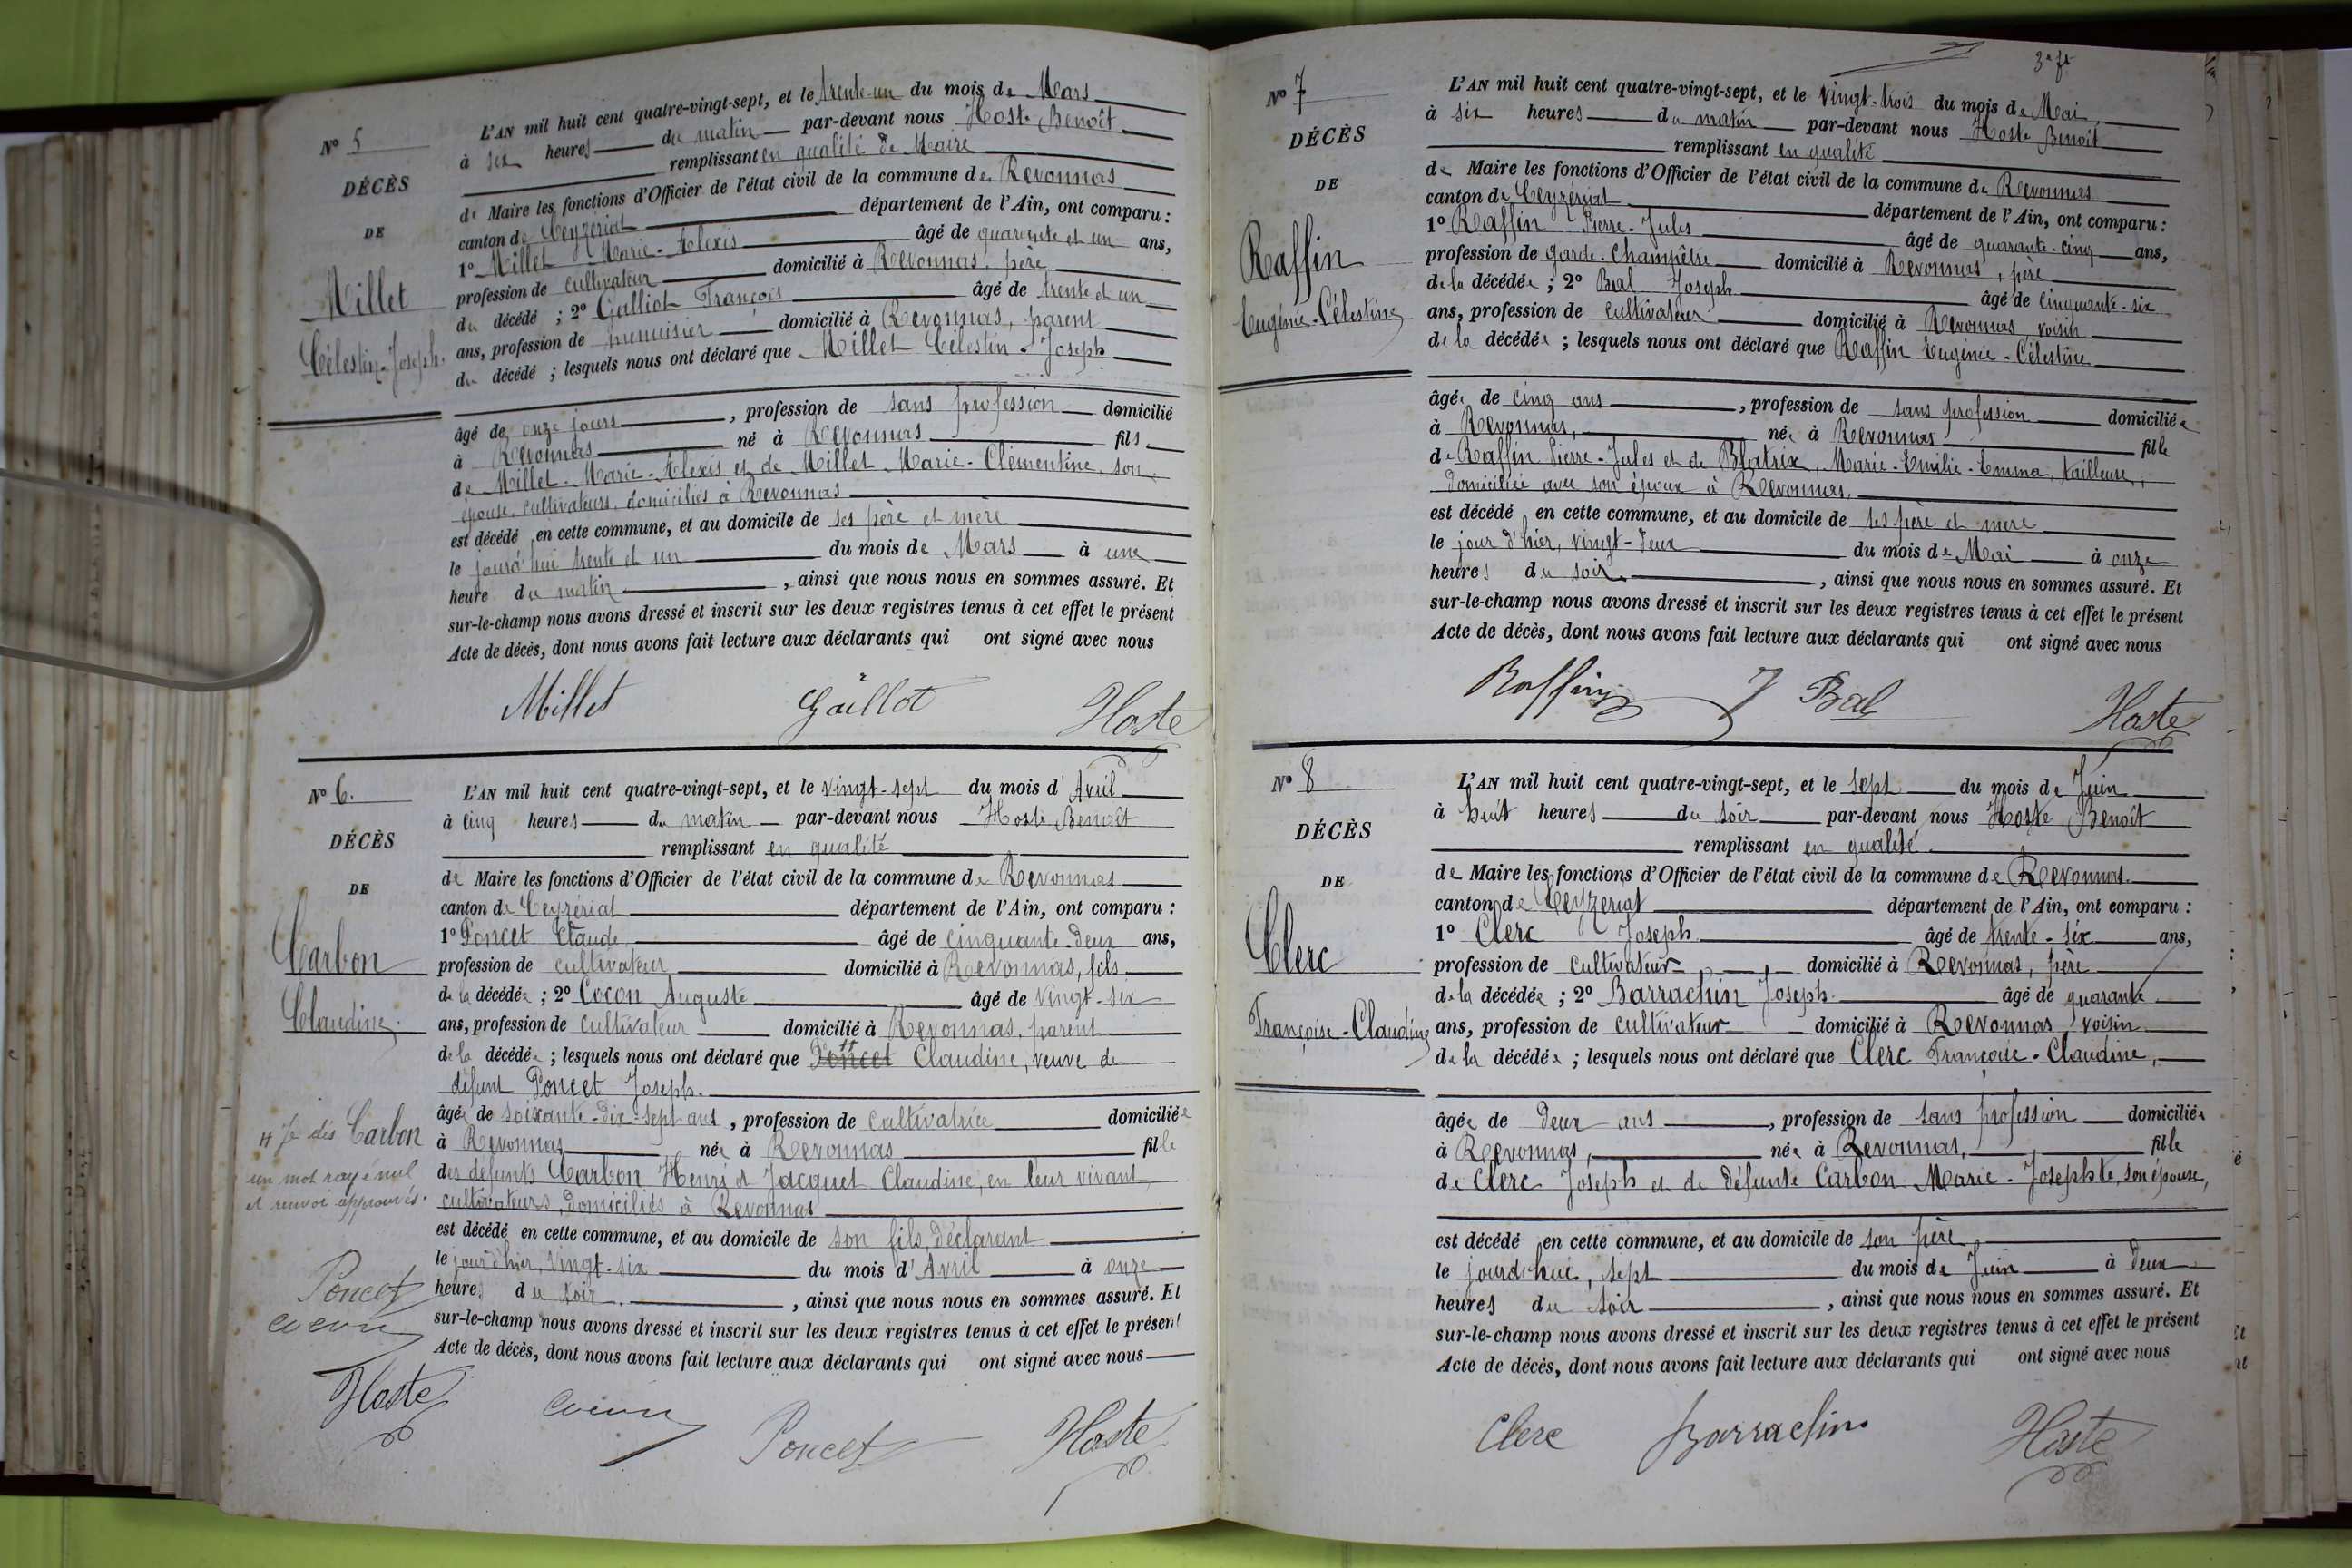 N° 5
DÉCÈS
DE
Millet
Célestin-Joseph.
L'AN mil huit cent quatre-vingt-sept, et le trente-un du mois de Mars
à six heures du matin par-devant nous Hoste Benoît
remplissant en qualité de Maire
de Maire les fonctions d'Officier de l'état civil de la commune de Revonnas
canton de Ceyzériat département de l'Ain, ont comparu :
1° Millet Marie-Alexis âgé de quarante et un ans,
profession de cultivateur domicilié à Revonnas, père
du décédé ; 2° Galliot François âgé de trente et un
ans, profession de menuisier domicilié à Revonnas, parent
du décédé ; lesquels nous ont déclaré que Millet Célestin-Joseph
âgé de onze jours, profession de sans profession domicilié
à Revonnas né à Revonnas fils
de Millet-Marie-Alexis et de Millet Marie-Clémentine, son
épouse, cultivateurs, domiciliés à Revonnas
est décédé en cette commune, et au domicile de ses père et mère
le jourd'hui trente et un du mois de Mars à une
heure du matin, ainsi que nous nous en sommes assuré. Et
sur-le-champ nous avons dressé et inscrit sur les deux registres tenus à cet effet le présent
Acte de décès, dont nous avons fait lecture aux déclarants qui ont signé avec nous
Millet Gaillot Hoste
N° 6.
DÉCÈS
DE
Carbon
Claudine.
L'AN mil huit cent quatre-vingt-sept, et le vingt-sept du mois d'Avril
à cinq heures du matin par-devant nous Hoste Benoît
remplissant en qualité
de Maire les fonctions d'Officier de l'état civil de la commune de Revonnas
canton de Ceyzériat département de l'Ain, ont comparu :
1° Poncet Claude, âgé de cinquante-deux ans,
profession de cultivateur domicilié à Revonnas, fils
de la décédée ; 2° Cocon Auguste âgé de vingt-six
ans, profession de cultivateur domicilié à Revonnas, parent
de la décédée ; lesquels nous ont déclaré que Poncet Claudine, veuve de
défunt Poncet Joseph.
âgée de soixante-dix-sept ans, profession de cultivatrice domiciliée
à Revonnas née à Revonnas fille
des défunts Carbon Henri et Jacquet Claudine, en leur vivant
cultivateurs, domiciliés à Revonnas
est décédé en cette commune, et au domicile de son fils, déclarant
le jour d'hier, vingt-six du mois d'Avril à onze
heures du soir, ainsi que nous nous en sommes assuré. Et
sur-le-champ nous avons dressé et inscrit sur les deux registres tenus à cet effet le présent
Acte de décès, dont nous avons fait lecture aux déclarants qui ont signé avec nous
Je dis Carbon
un mot rayé nul
et renvoi approuvés.
Poncet
Cocon
Hoste
Cocon Poncet Hoste
3e ft
N° 7
DÉCÈS
DE
Raffin
Eugénie-Célestine
L'AN mil huit cent quatre-vingt-sept, et le vingt-trois du mois de Mai,
à six heures du matin par-devant nous Hoste Benoît
remplissant en qualité
de Maire les fonctions d'Officier de l'état civil de la commune de Revonnas
canton de Ceyzériat département de l'Ain, ont comparu :
1° Raffin Pierre-Jules âgé de quarante-cinq ans,
profession de garde-champêtre domicilié à Revonnas, père
de la décédée ; 2° Bal Joseph âgé de cinquante-six
ans, profession de cultivateur domicilié à Revonnas, voisin
de la décédée ; lesquels nous ont déclaré que Raffin Eugénie-Célestine
âgée de cinq ans, profession de sans profession domiciliée
à Revonnas, née à Revonnas fille
de Raffin Pierre-Jules et de Blatrix, Marie-Emilie-Emma, tailleuse,
domiciliée avec son époux à Revonnas,
est décédé en cette commune, et au domicile de ses père et mère
le jour d'hier, vingt-deux du mois de Mai à onze
heures du soir, ainsi que nous nous en sommes assuré. Et
sur-le-champ nous avons dressé et inscrit sur les deux registres tenus à cet effet le présent
Acte de décès, dont nous avons fait lecture aux déclarants qui ont signé avec nous
Raffin J Bal Hoste
N° 8
DÉCÈS
DE
Clerc
Françoise-Claudine
L'AN mil huit cent quatre-vingt-sept, et le sept du mois de Juin
à huit heures du soir par-devant nous Hoste Benoît
remplissant en qualité
de Maire les fonctions d'Officier de l'état civil de la commune de Revonnas.
canton de Ceyzériat département de l'Ain, ont comparu :
1° Clerc Joseph âgé de trente-six ans,
profession de cultivateur domicilié à Revonnas, père
de la décédée ; 2° Barrachin Joseph. âgé de quarante
ans, profession de cultivateur domicilié à Revonnas voisin
de la décédée ; lesquels nous ont déclaré que Clerc Françoise-Claudine,
âgée de deux ans, profession de sans profession domiciliée
à Revonnas, née à Revonnas, fille
de Clerc Joseph et de défunte Carbon Marie-Josephte, son épouse,
est décédé en cette commune, et au domicile de son père
le jourd'hui, sept du mois de Juin à deux
heures du soir, ainsi que nous nous en sommes assuré. Et
sur-le-champ nous avons dressé et inscrit sur les deux registres tenus à cet effet le présent
Acte de décès, dont nous avons fait lecture aux déclarants qui ont signé avec nous
Clerc Barrachin Hoste